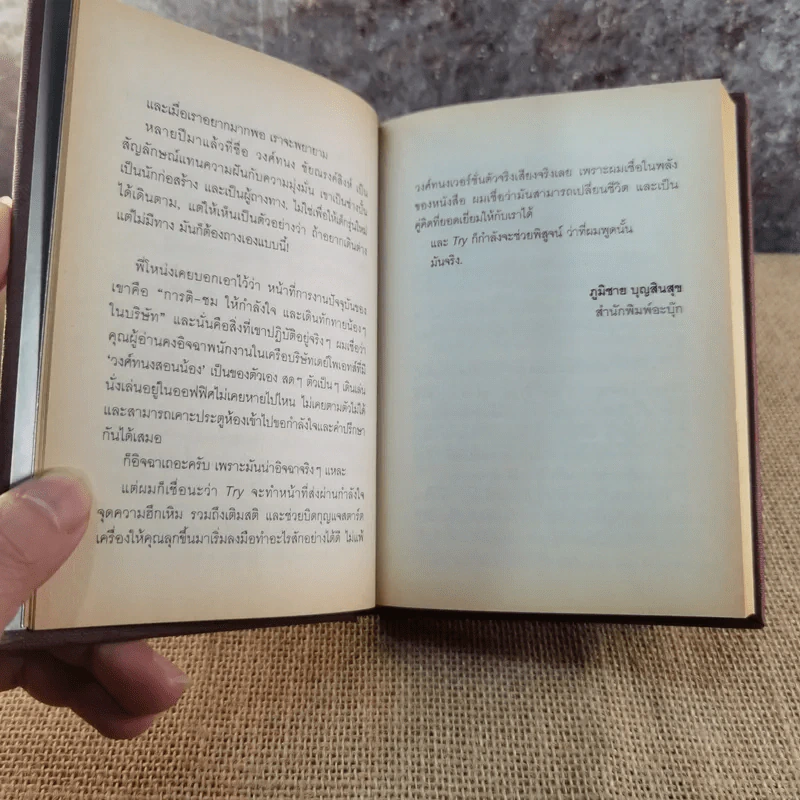 และเมื่อเราอยากมากพอ เราจะพยายาม
หลายปีมาแล้วที่ชื่อ วงศ์ทนง ชัยณรงค์สิงห์ เป็น
สัญลักษณ์แทนความฝันกับความมุ่งมั่น เขาเป็นช่างปั้น
เป็นนักก่อสร้าง และเป็นผู้ถางทาง, ไม่ใช่เพื่อให้เด็กรุ่นใหม่
ได้เดินตาม, แต่ให้เห็นเป็นตัวอย่างว่า ถ้าอยากเดินต่าง
แต่ไม่มีทาง มันก็ต้องถางเองแบบนี้!
พี่โหน่งเคยบอกเอาไว้ว่า หน้าที่การงานปัจจุบันของ
เขาคือ “การติ–ชม ให้กำลังใจ และเดินทักทายน้องๆ
ในบริษัท” และนั่นคือสิ่งที่เขาปฏิบัติอยู่จริงๆ ผมเชื่อว่า
คุณผู้อ่านคงอิจฉาพนักงานในเครือบริษัทเดย์โพเอทส์ที่มี
‘วงศ์ทนงสอนน้อง’ เป็นของตัวเอง สดๆ ตัวเป็นๆ เดินเล่น
นั่งเล่นอยู่ในออฟฟิศไม่เคยหายไปไหน ไม่เคยตามตัวไม่ได้
และสามารถเคาะประตูห้องเข้าไปขอกำลังใจและคำปรึกษา
กันได้เสมอ
ก็อิจฉาเถอะครับ เพราะมันน่าอิจฉาจริงๆ แหละ
แต่ผมก็เชื่อนะว่า Try จะทำหน้าที่ส่งผ่านกำลังใจ
จุดความฮึกเหิม รวมถึงเติมสติ และช่วยบิดกุญแจสตาร์ต
เครื่องให้คุณลุกขึ้นมาเริ่มลงมือทำอะไรสักอย่างได้ดี ไม่แพ้
วงศ์ทนงเวอร์ชั่นตัวจริงเสียงจริงเลย เพราะผมเชื่อในพลัง
ของหนังสือ ผมเชื่อว่ามันสามารถเปลี่ยนชีวิต และเป็น
คู่คิดที่ยอดเยี่ยมให้กับเราได้
และ Try ก็กำลังจะช่วยพิสูจน์ ว่าที่ผมพูดนั้น
มันจริง.
ภูมิชาย บุญสินสุข
สำนักพิมพ์อะบุ๊ก